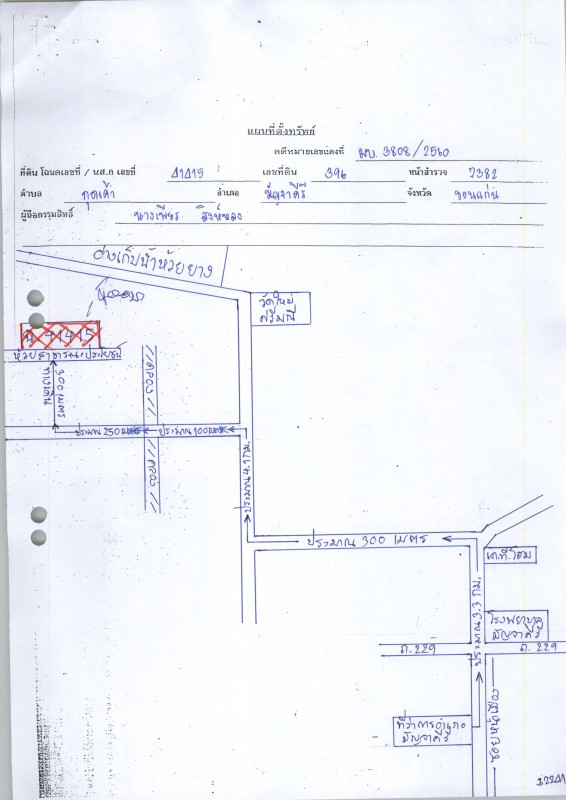 แผนที่ตั้งทรัพย์
คดีหมายเลขแดงที่ ผบ. 3808/2560
ที่ดิน โฉนดเลขที่ / นส.ก เลขที่ 41415 เลขที่ดิน 396 หน้าสำรวจ 7382
ตำบล กุดเค้า อำเภอ มัญจาคีรี จังหวัด ขอนแก่น
ผู้ถือกรรมสิทธิ์ นางเพียร สิงห์หลง
อ่างเก็บน้ำห้วยยาง
วัดใหม่
ศรีมณี
น 41415
ห้วยสาธารณะประโยชน์
300 เมตร
ทางเดิน
คลอง
ประมาณ 250 เมตร
ประมาณ 100 เมตร
คลอง
ประมาณ 4.1 กม.
ประมาณ 300 เมตร
เค.ที.โฮม
ประมาณ 3.3 กม.
โรงพยาบาล
มัญจาคีรี
ถ. 229
ถ. 229
ที่ว่าการอำเภอ
มัญจาคีรี